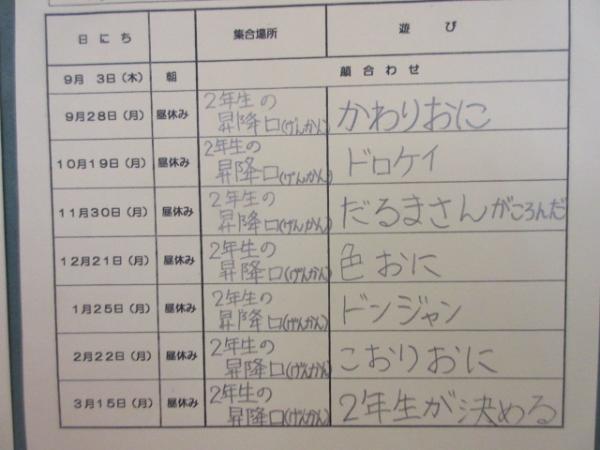 日にち 集合場所 遊び
9月 3日(木) 朝 顔合わせ
9月28日(月) 昼休み 2年生の昇降口(げんかん) かわりおに
10月19日(月) 昼休み 2年生の昇降口(げんかん) ドロケイ
11月30日(月) 昼休み 2年生の昇降口(げんかん) だるまさんがころんだ
12月21日(月) 昼休み 2年生の昇降口(げんかん) 色おに
1月25日(月) 昼休み 2年生の昇降口(げんかん) ドンジャン
2月22日(月) 昼休み 2年生の昇降口(げんかん) こおりおに
3月15日(月) 昼休み 2年生の昇降口(げんかん) 2年生が決める